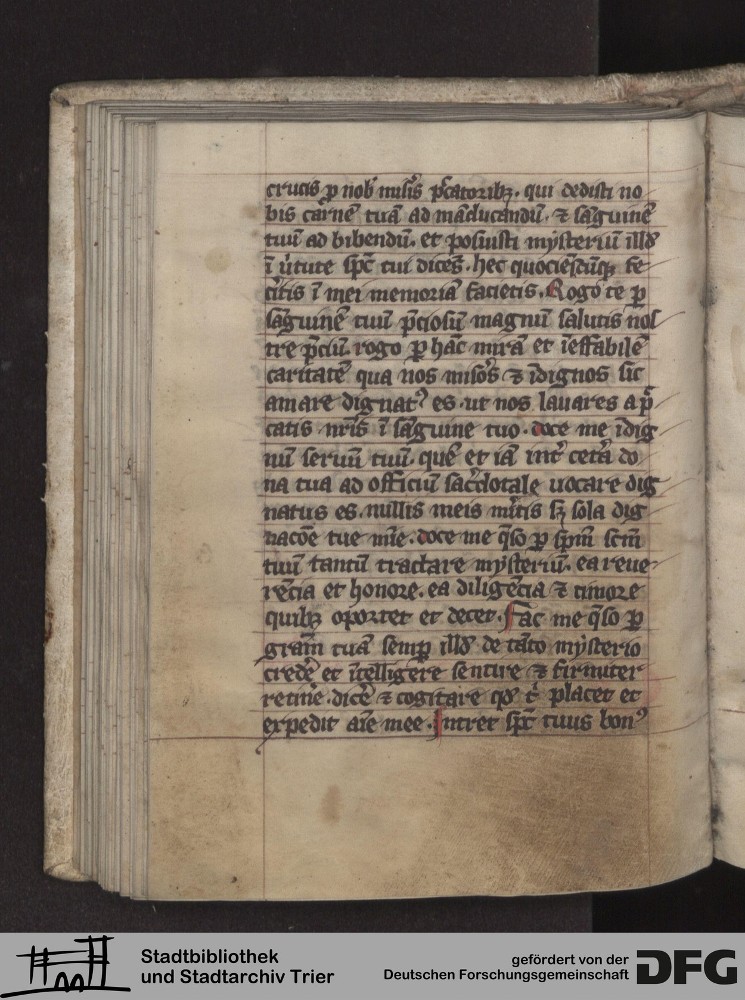 crucis ꝑ nob̄ mis̄is pc̄catoribꝫ. qui dedisti no
bis carnē tuā ad māducandū. ⁊ sāguinē
tuū ad bibendū. et posuisti mysteriū illđ
ī v̄tute sp̄c tui dicēs. hec quociēscūqꝫ fe
cītis ī mei memoriā facietis. Rogo te ꝑ
sāguinē tuū p̄ciosū magnū salutis nos
tre p̄ciū. rogo ꝑ hāc mirā et īeffabilē
caritatē qua nos misos̄ ⁊ īdignos sic
amare dignatꝰ es. ut nos lauares a p̄c
catis nr̄is ī sāguine tuo. doce me īdig
nū seruū tuū. quē et iā int̄ cet̄a do
na tua ad officiū sac̄dotale uocare dig
natus es. nullis meis m̄itis sꝫ sola dig
nacōe tue mīe. doce me q̄so ꝑ sp̄m sc̄m
tuū tantū tractare mysteriū. ea reue
rēcia et honore. ea diligēcia ⁊ timore
quibꝫ oportet et decet. Fac me q̄so ꝑ
gram̄ tuā semꝑ illđ de tāto mysterio
credē et ītelligere sentire ⁊ firmiter
retinē. dicē ⁊ cogitare qđ t̄ placet et
expedit aīe mee. Intret sp̄c tuus bonꝰ
Stadtbibliothek
und Stadtarchiv Trier
gefördert von der
Deutschen Forschungsgemeinschaft
DFG